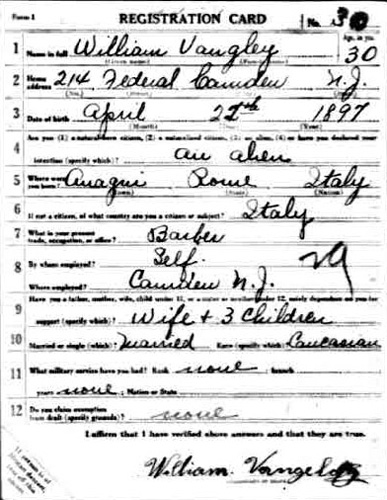 Form 1 REGISTRATION CARD No. 30
1 Name in full William Vangley Age, in yrs. 30
(Given name) (Family name)
2 Home address 214 Federal Camden N.J.
(No.) (Street) (City) (State)
3 Date of birth April 22th 1897
(Month) (Day) (Year)
4 Are you (1) a natural-born citizen, (2) a naturalized citizen, (3) an alien, (4) or have you declared your
intention (specify which)? an alien
5 Where were you born? Anagni Rome Italy
(Town) (State) (Nation)
6 If not a citizen, of what country are you a citizen or subject? Italy
7 What is your present trade, occupation, or office? Barber
8 By whom employed? Self
Where employed? Camden N.J.
9 Have you a father, mother, wife, child under 12, or a sister or brother under 12, solely dependent on you for
support (specify which)? Wife + 3 Children
10 Married or single (which)? Married Race (specify which)? Caucasian
11 What military service have you had? Rank none ; branch
years none ; Nation or State
12 Do you claim exemption from draft (specify grounds)? none
I affirm that I have verified above answers and that they are true.
William Vangeloz